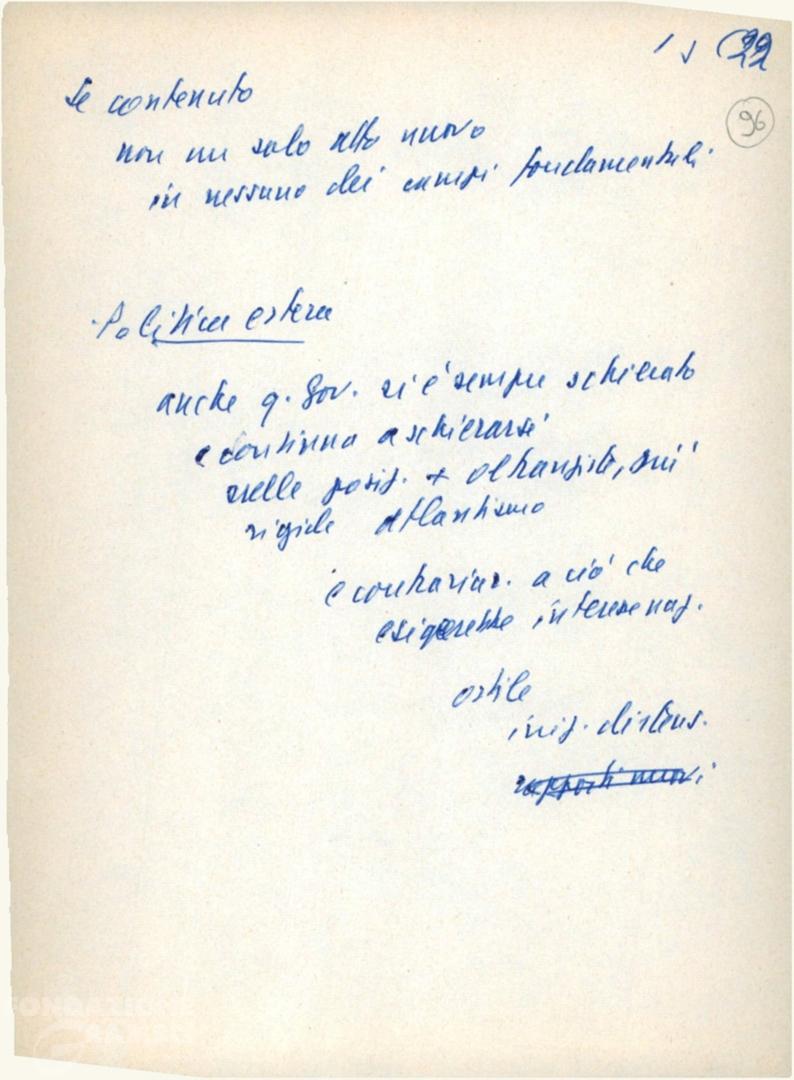 22
96
Se contenuto
non un solo atto nuovo
in nessuno dei campi fondamentali
Politica estera
anche q. Gov. si è sempre schierato
e continua a schierarsi
nelle posiz. + oltranziste, sui
rigide atlantismo
è contrariar. a ciò che
esigerebbe interesse naz.
ostile
iniz. distens.
rapporti nuovi
FONDAZIONE